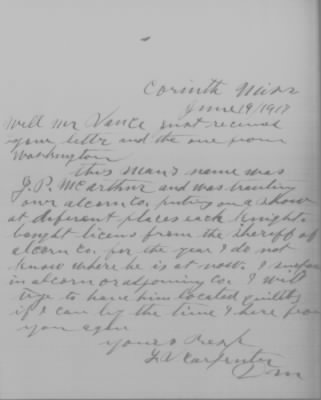 Corinth Miss
June 19/1917
Will Mr Vance just received
your lettr and the one from
Washington
this man's name was
J. P. McArthur and was traveling
over alcorn Co. puting on a show
at diferent places each knight
bought licens from the sheriff of
alcorn Co. for the year I do not
know where he is at now. I
in alcorn or adjoining Co I will
trye to have him located quietly
if I can by the time I here from
you again
yours Respt
L V Carpenter